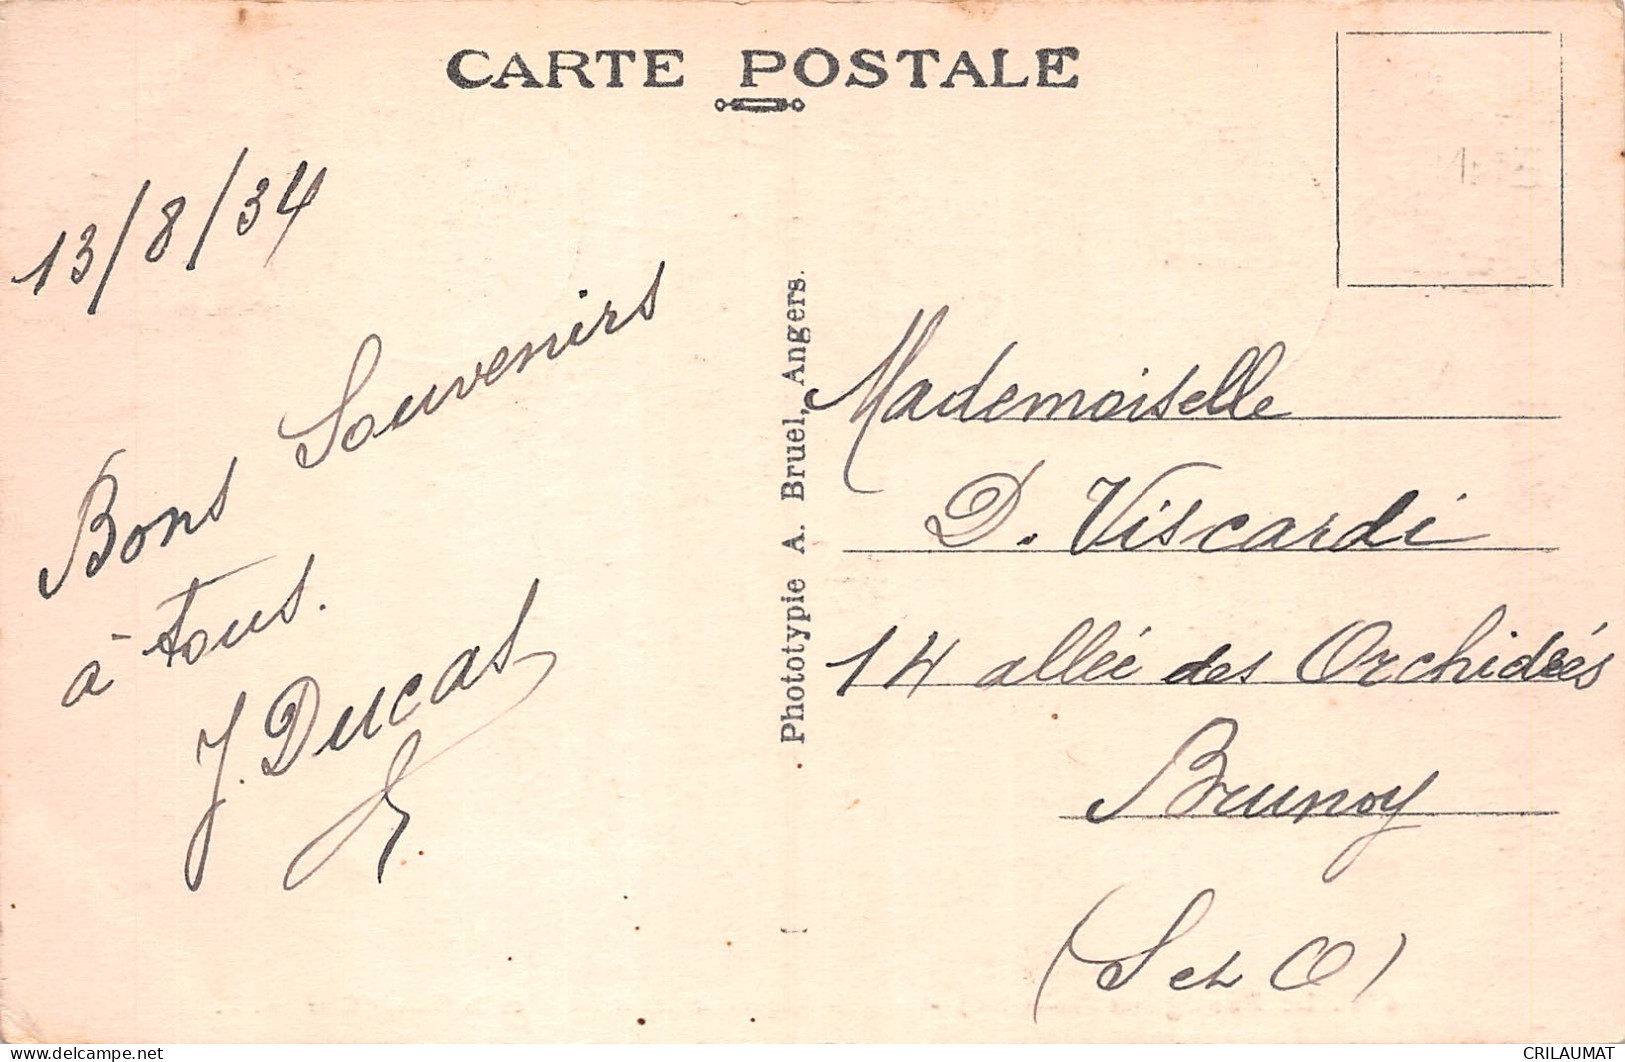 CARTE POSTALE
13/8/34
Bons Souvenirs
à tous.
J. Ducas
Phototypie A. Bruel, Angers.
Mademoiselle
D. Viscardi
14 allée des Orchidées
Brunoy
(S et O)
delcampe.net
CRILAUMAT